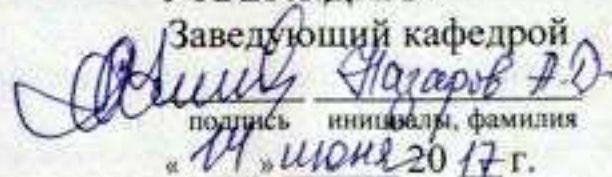 Заведующий кафедрой
Назаров А.Д.
подпись инициалы, фамилия
« 14 » июня 20 17 г.